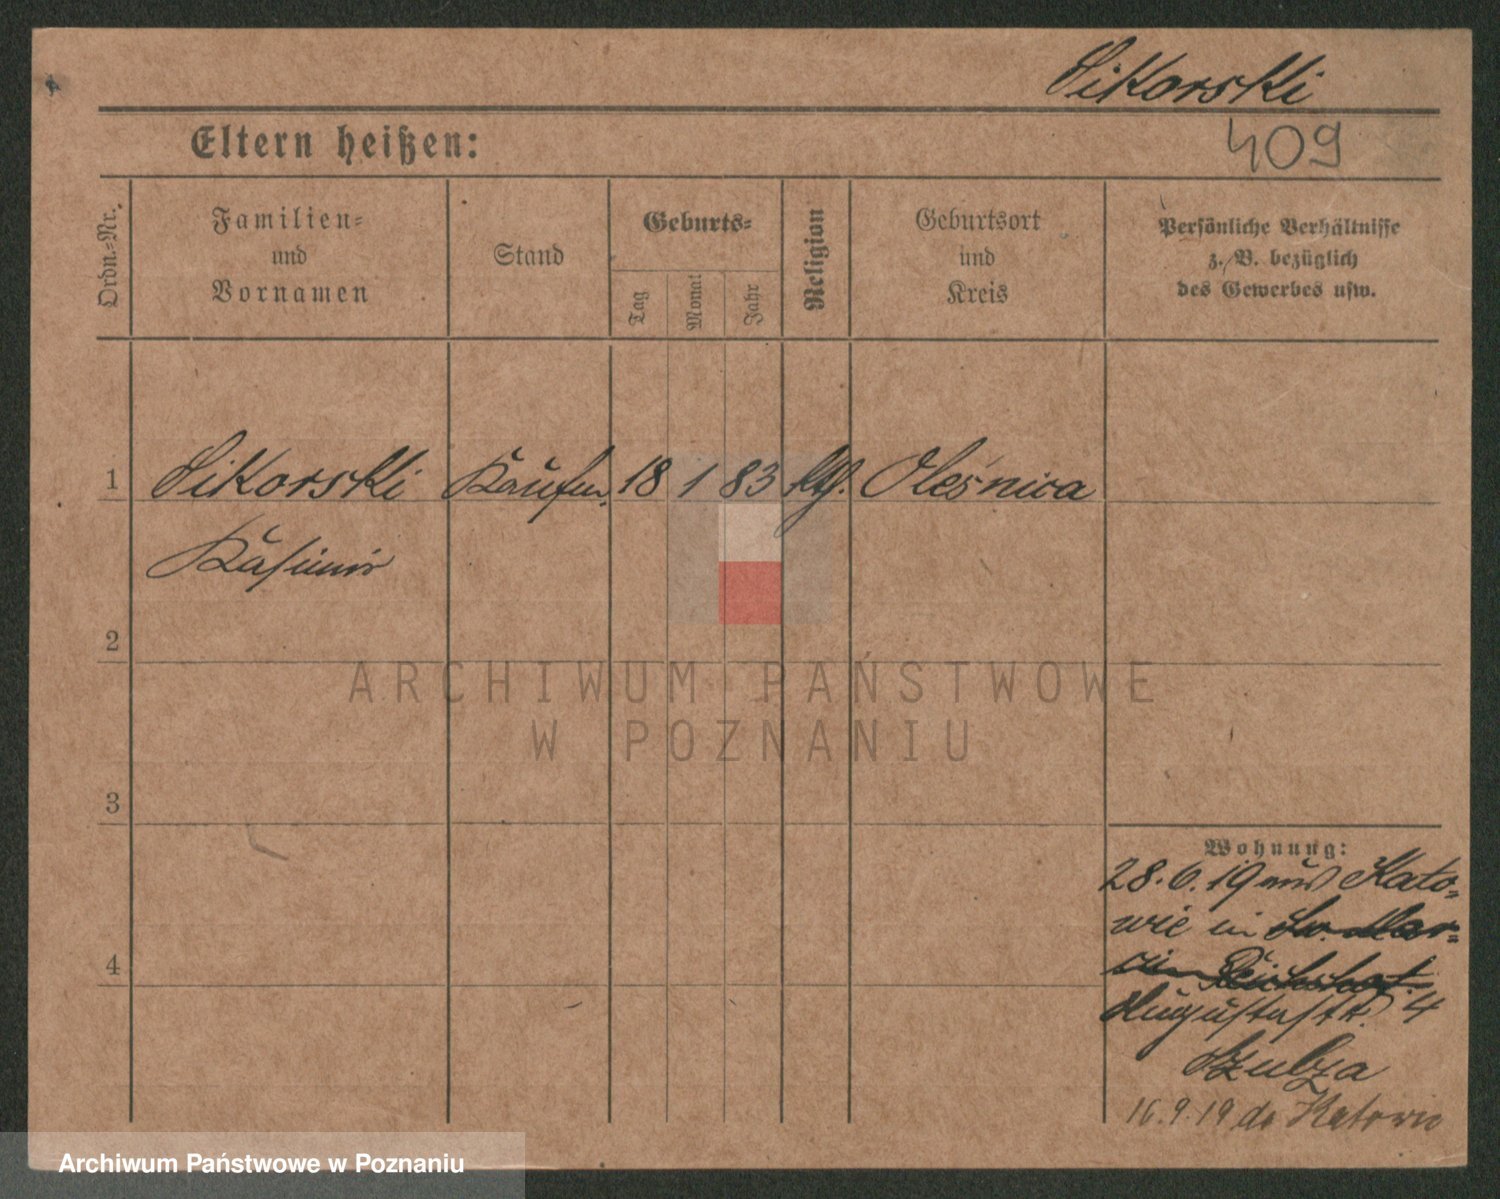 Sikorski
Eltern heißen:
409
Ordn.-Nr.
Familien-
und
Vornamen
Stand
Geburts-
Tag
Monat
Jahr
Religion
Geburtsort
und
Kreis
Persönliche Verhältnisse
z. B. bezüglich
des Gewerbes usw.
1 Sikorski Kaufm. 18 1 83 kth. Oleśnica
Kasimir
2
ARCHIWUM PAŃSTWOWE
W POZNANIU
3
4
Wohnung:
28.6.19 aus Kato-
wic in Św. Mar-
cin Reichshof.
Augustastr. 4
Szubza
16.9.19 do Katowic
Archiwum Państwowe w Poznaniu